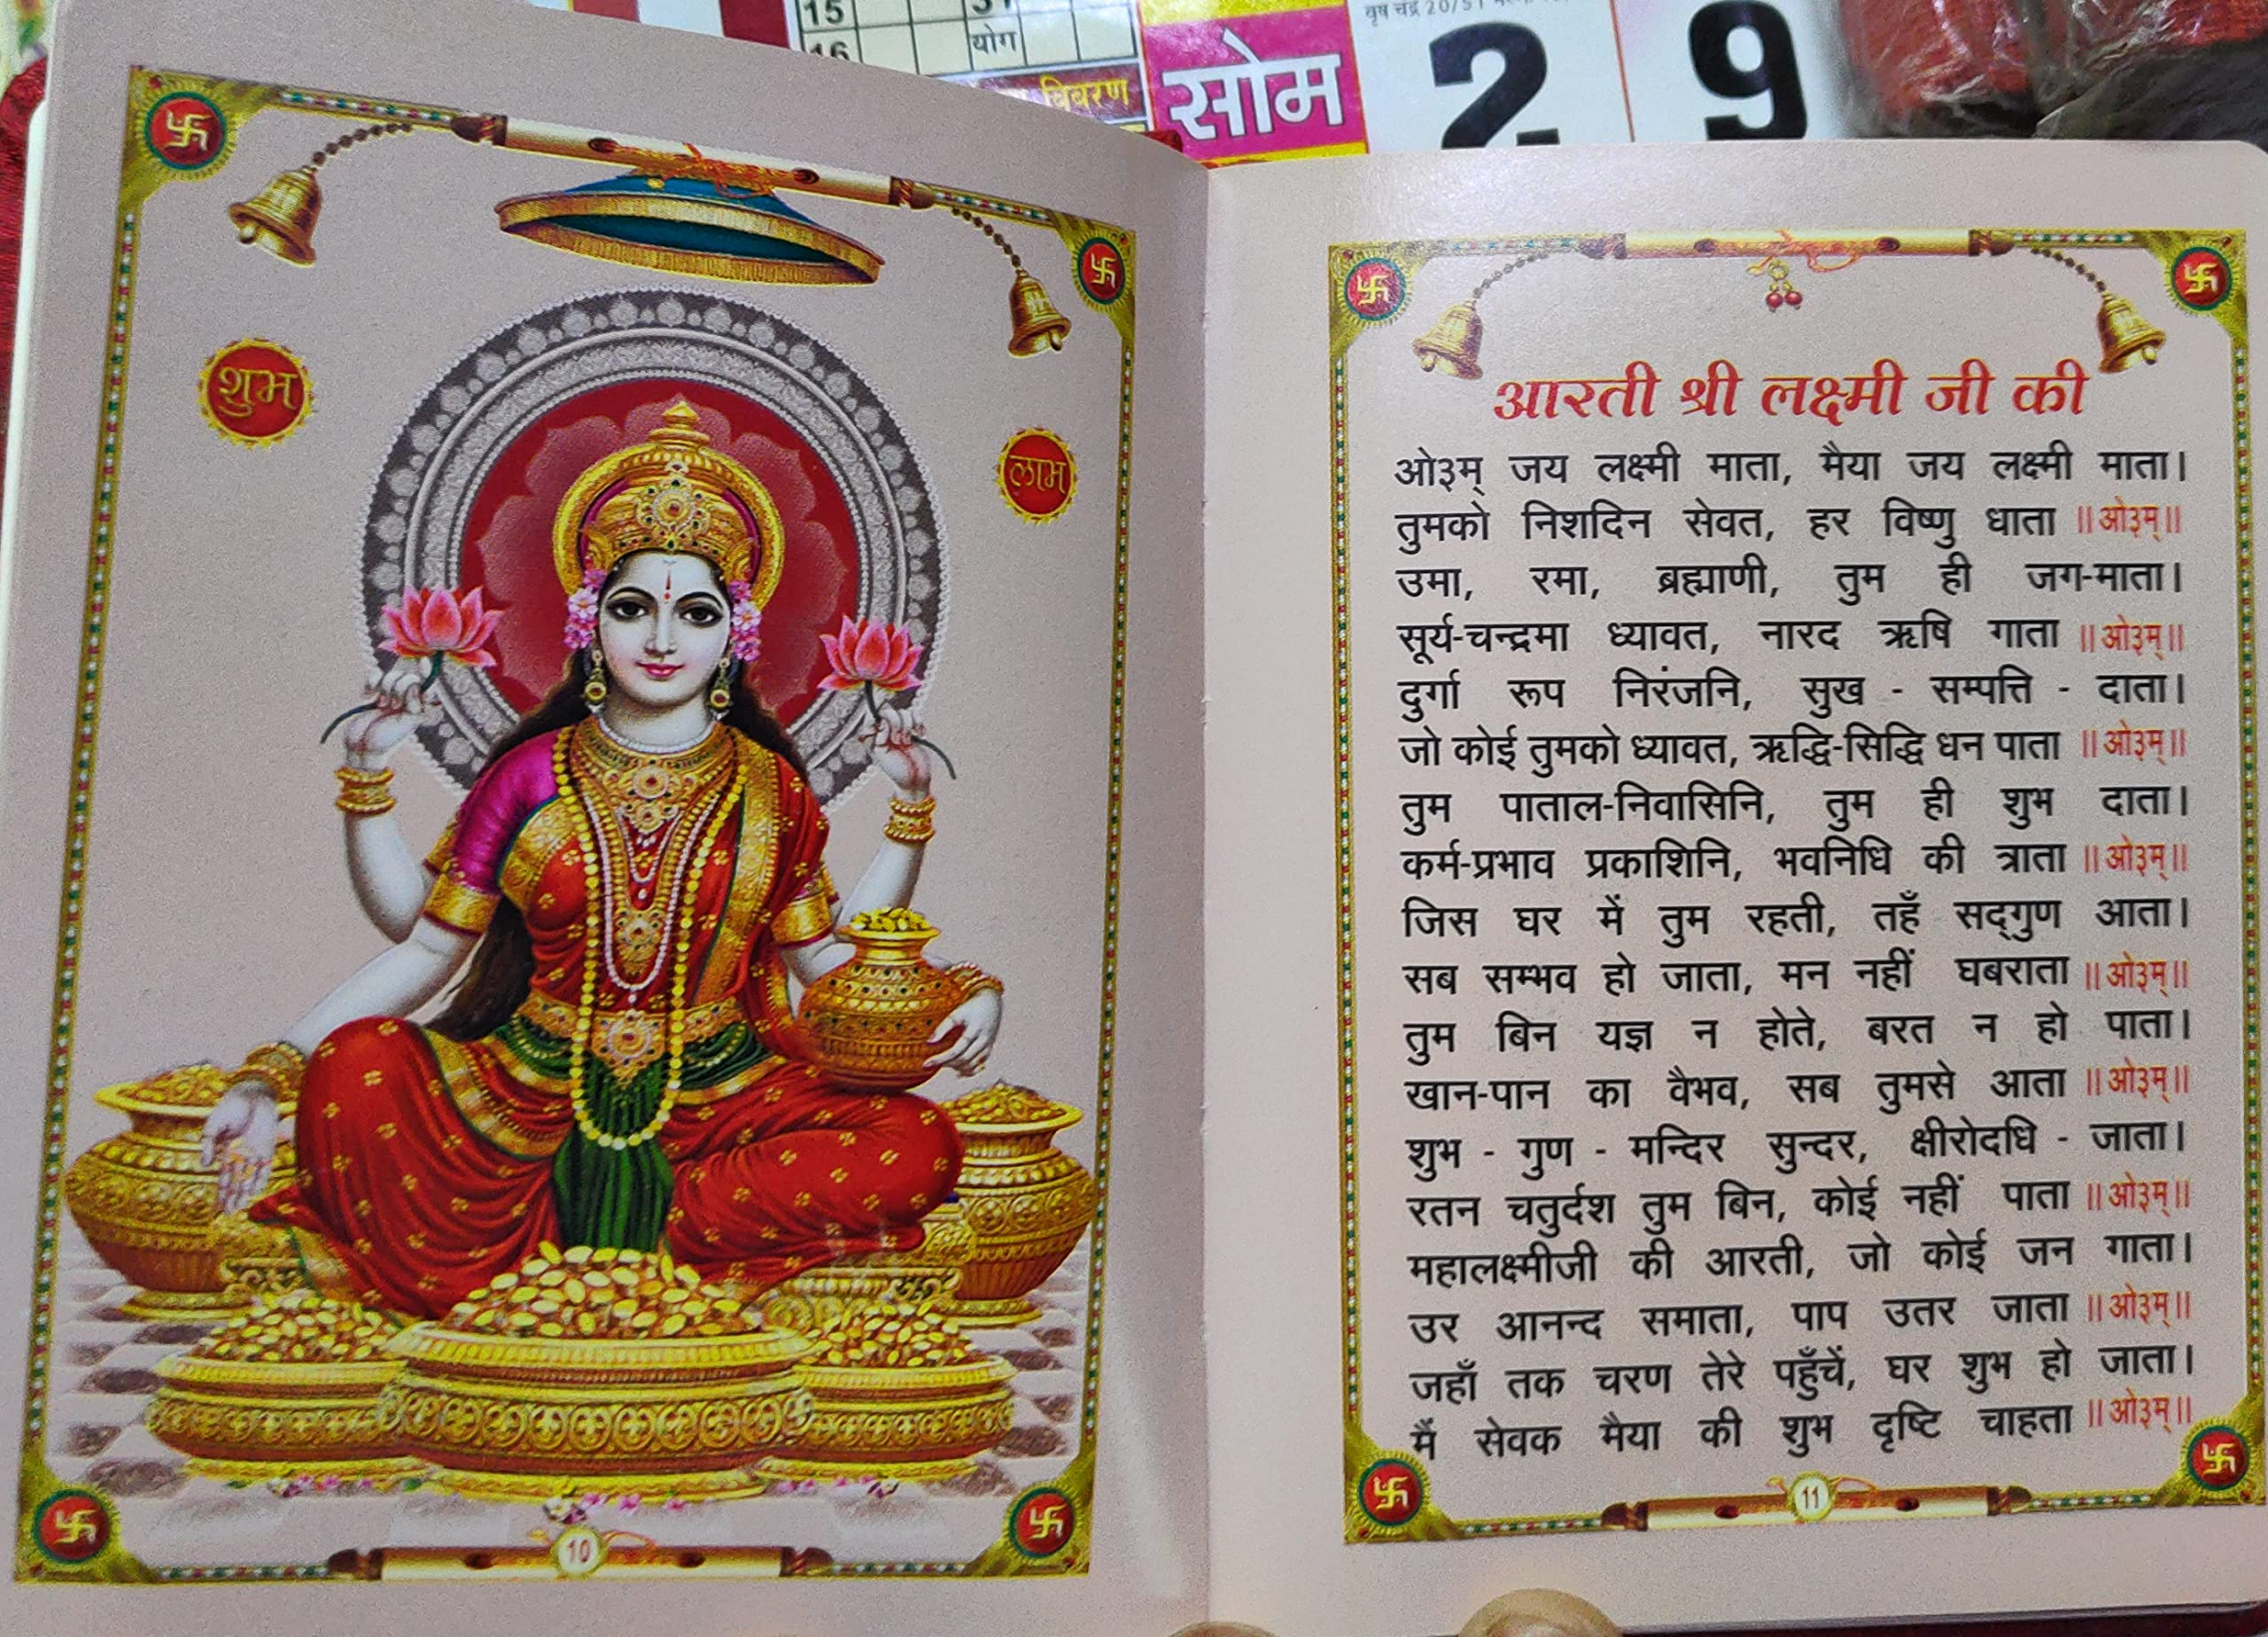 15
31
16
योग
विवरण
सोम
2
9
वृष चंद्र 20/51
शुभ
लाभ
10
आरती श्री लक्ष्मी जी की
ओ३म् जय लक्ष्मी माता, मैया जय लक्ष्मी माता।
तुमको निशदिन सेवत, हर विष्णु धाता ॥ओ३म्॥
उमा, रमा, ब्रह्माणी, तुम ही जग-माता।
सूर्य-चन्द्रमा ध्यावत, नारद ऋषि गाता ॥ओ३म्॥
दुर्गा रूप निरंजनि, सुख - सम्पत्ति - दाता।
जो कोई तुमको ध्यावत, ऋद्धि-सिद्धि धन पाता ॥ओ३म्॥
तुम पाताल-निवासिनि, तुम ही शुभ दाता।
कर्म-प्रभाव प्रकाशिनि, भवनिधि की त्राता ॥ओ३म्॥
जिस घर में तुम रहती, तहँ सद्‌गुण आता।
सब सम्भव हो जाता, मन नहीं घबराता ॥ओ३म्॥
तुम बिन यज्ञ न होते, बरत न हो पाता।
खान-पान का वैभव, सब तुमसे आता ॥ओ३म्॥
शुभ - गुण - मन्दिर सुन्दर, क्षीरोदधि - जाता।
रतन चतुर्दश तुम बिन, कोई नहीं पाता ॥ओ३म्॥
महालक्ष्मीजी की आरती, जो कोई जन गाता।
उर आनन्द समाता, पाप उतर जाता ॥ओ३म्॥
जहाँ तक चरण तेरे पहुँचें, घर शुभ हो जाता।
मैं सेवक मैया की शुभ दृष्टि चाहता ॥ओ३म्॥
11